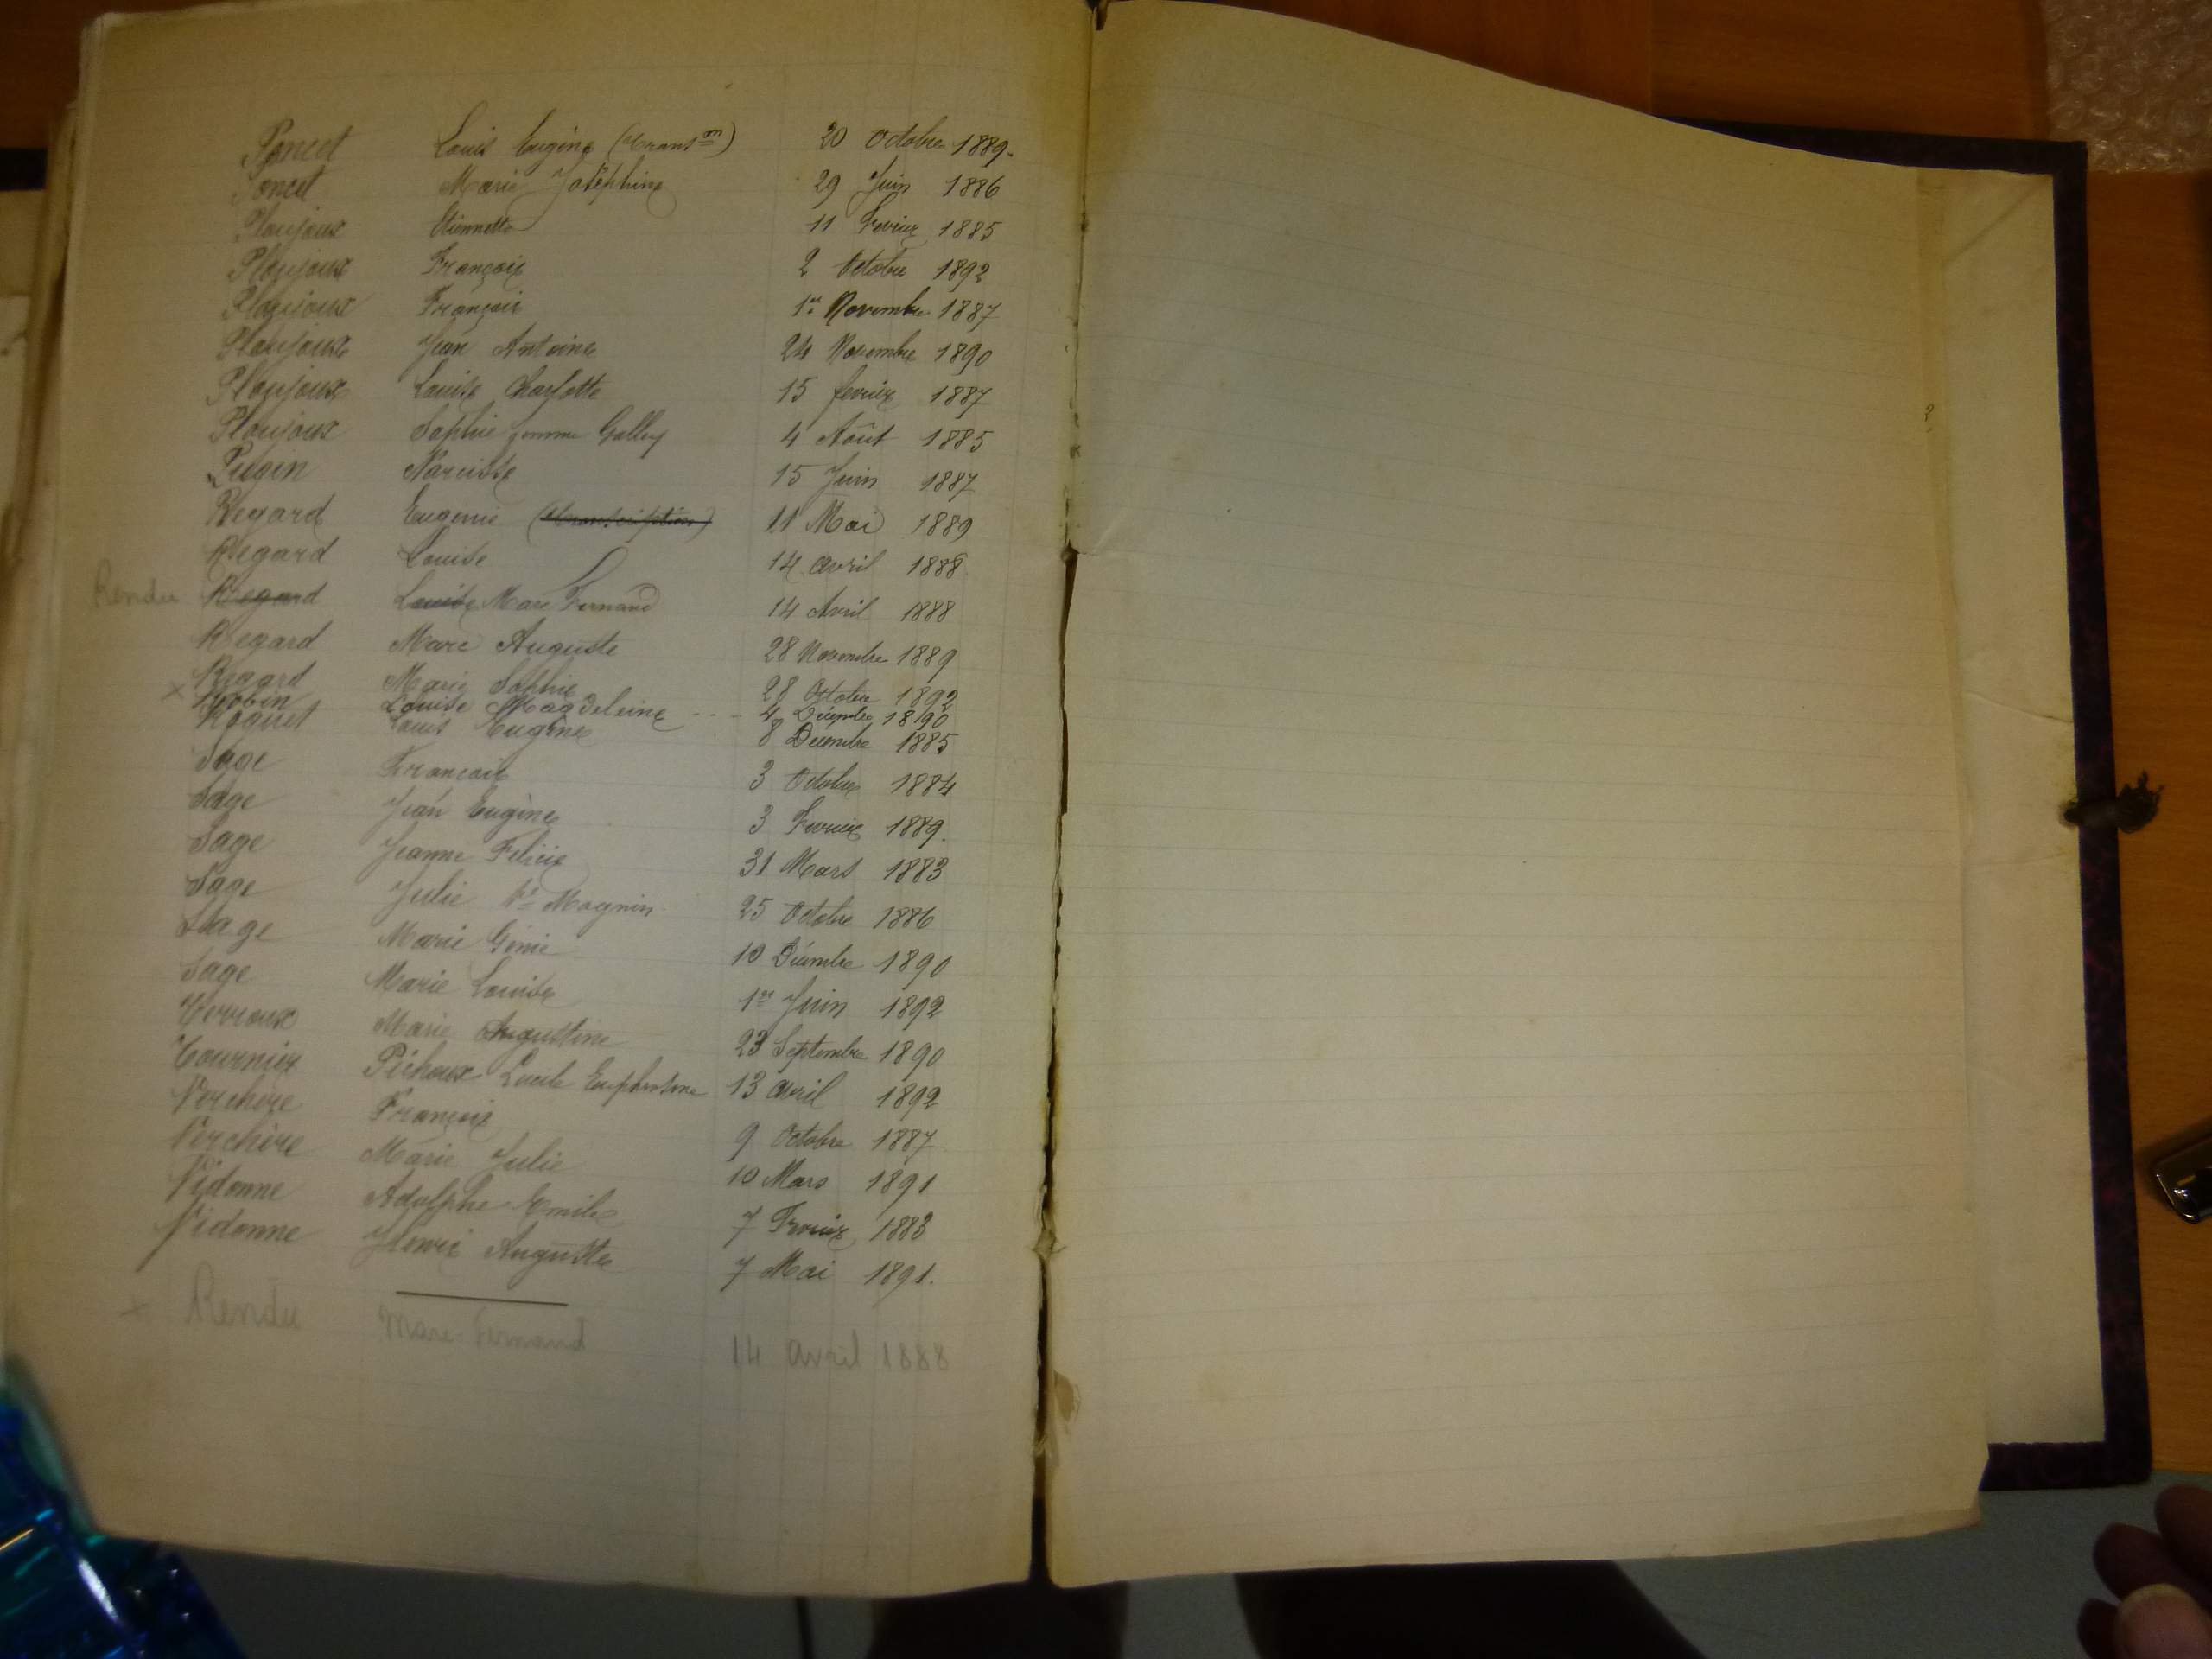 Poncet Louis Eugène (Trans.on) 20 Octobre 1889.
Poncet Marie Joséphine 29 Juin 1886
Ploujoux Etiennette 11 Fevrier 1885
Ploujoux François 2 Octobre 1892
Ploujoux François 1er Novembre 1887
Ploujoux Jean Antoine 24 Novembre 1890
Ploujoux Louise Charlotte 15 fevrier 1887
Ploujoux Sophie femme Galley 4 Août 1885
Pugin Narcisse 15 Juin 1887
Regard Eugenie (transcription) 11 Mai 1889
Regard Louise 14 avril 1888
Rendu Regard Louise Marc Fernand 14 Avril 1888
Regard Marc Auguste 28 Novembre 1889
Regard Marie Sophie 28 Octobre 1892
x Robin Louise Magdeleine - - - 4 Décembre 1890
Roquet Louis Eugène 8 Décembre 1885
Sage François 3 Octobre 1884
Sage Jean Eugène 3 Fevrier 1889.
Sage Jeanne Félicie 31 Mars 1883
Sage Julie Ve Magnin 25 Octobre 1886
Sage Marie Génie 10 Décembre 1890
Sage Marie Louise 1er Juin 1892
Terroux Marie Augustine 23 Septembre 1890
Tournier Pichoux Lucile Euphrosine 13 avril 1892
Verchère François 9 Octobre 1887
Verchère Marie Julie 10 Mars 1891
Vidonne Adolphe Emile 7 Fevrier 1883
Vidonne Henri Auguste 7 Mai 1891.
x Rendu Marc Fernand 14 avril 1888
2